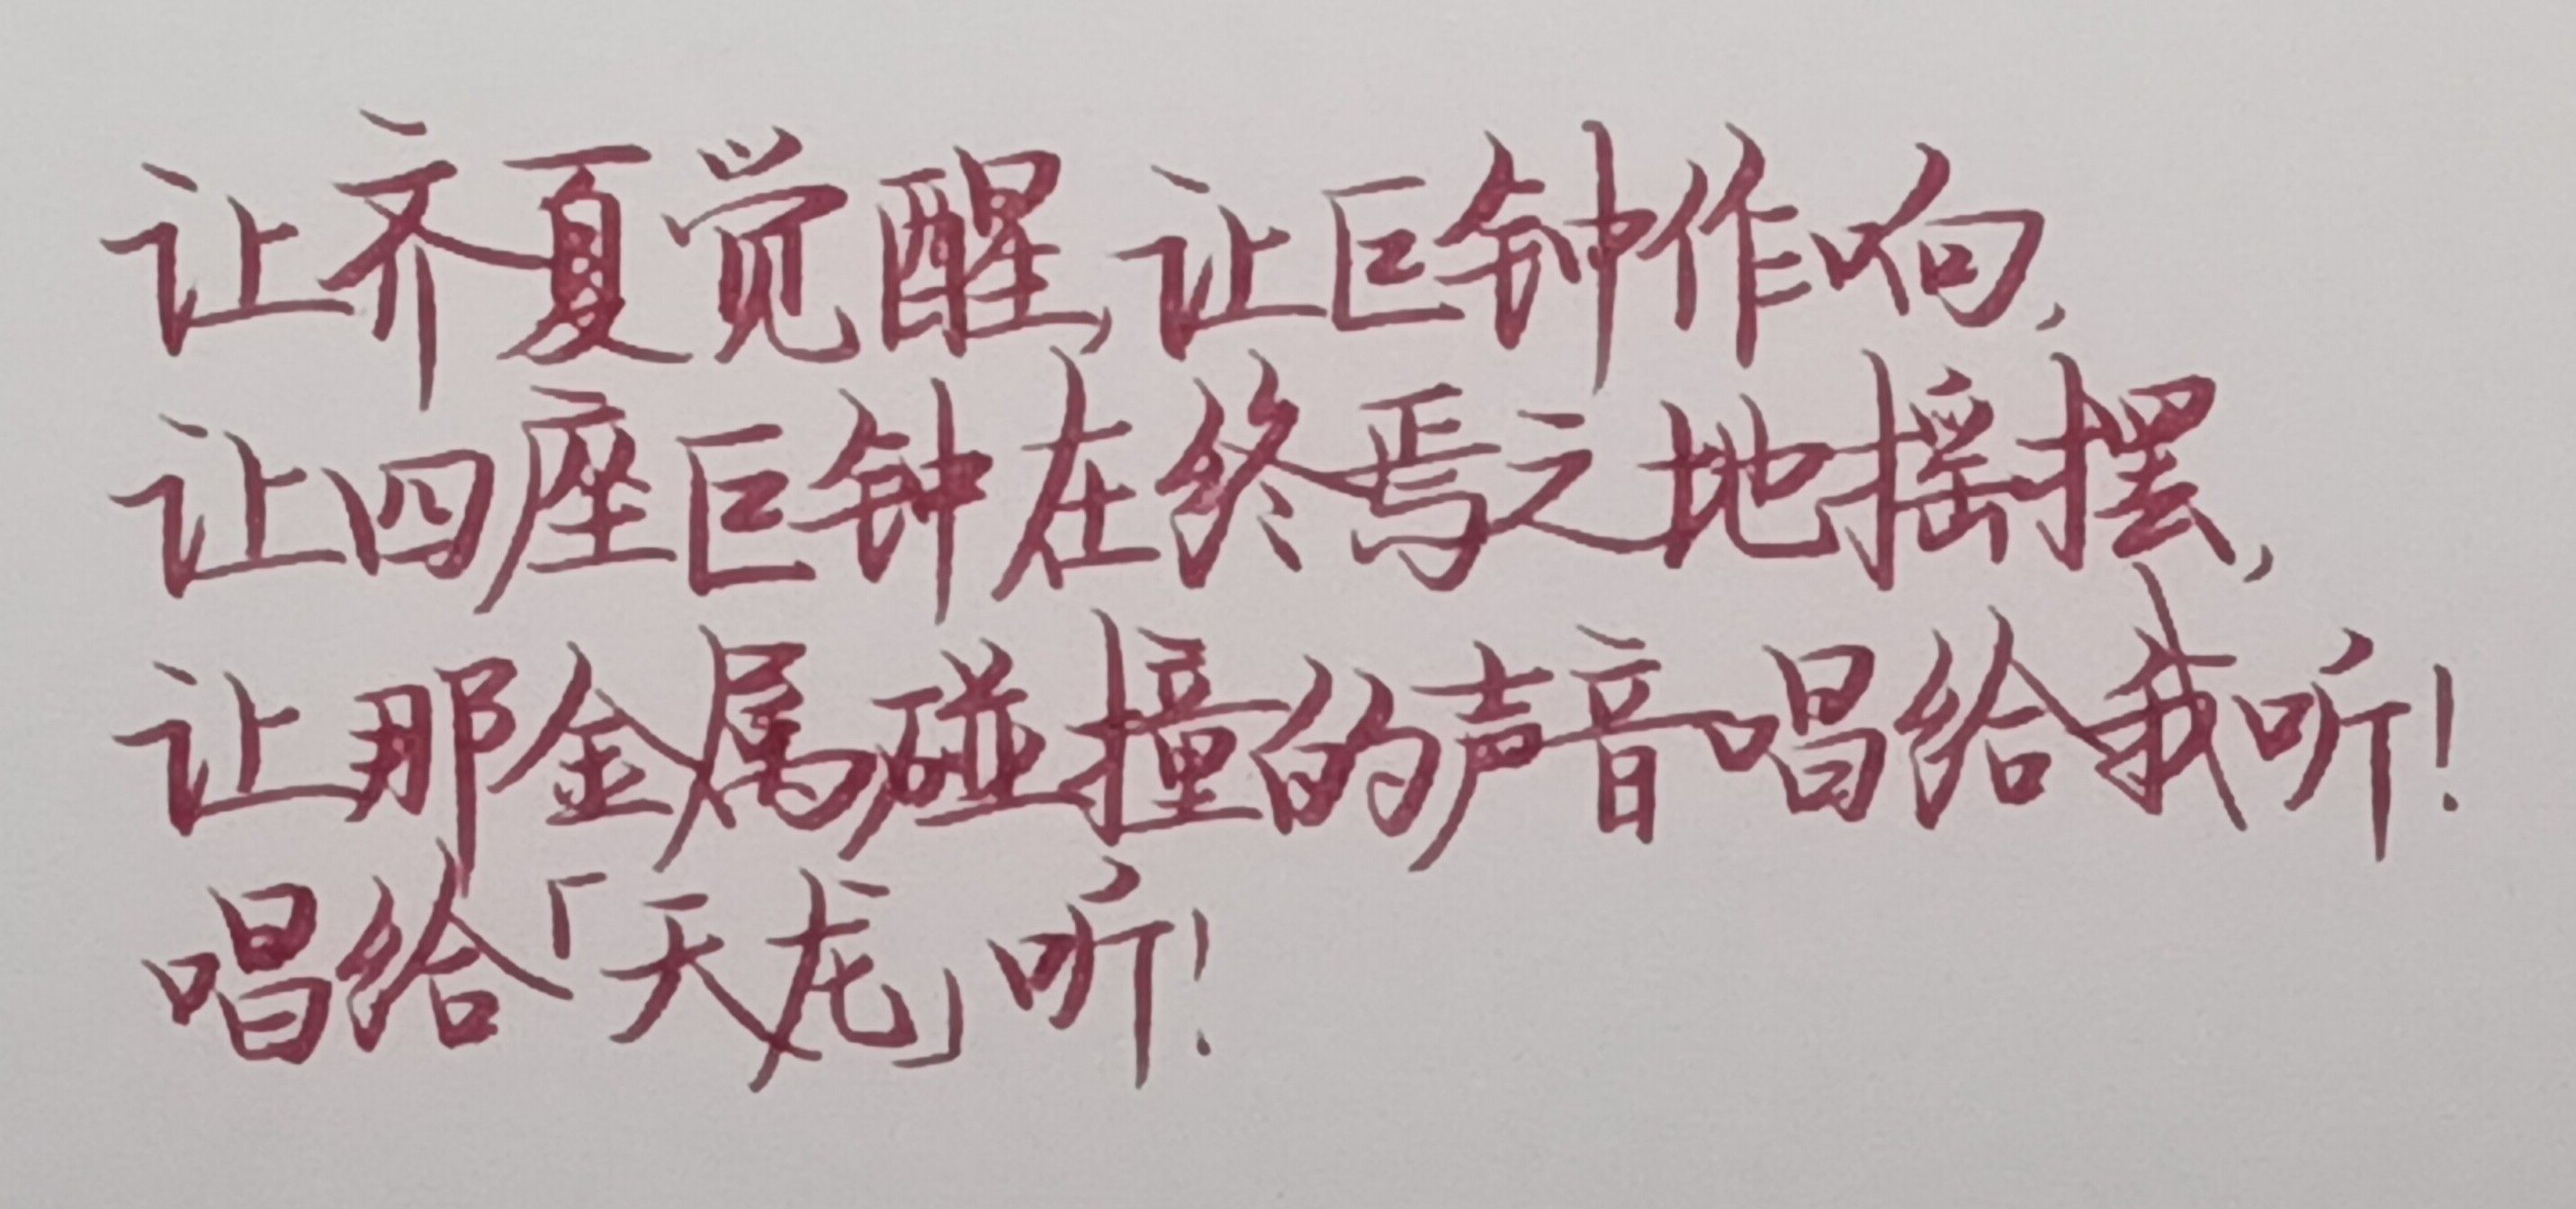 让齐夏觉醒,让巨钟作响,
让四座巨钟在终焉之地摇摆,
让那金属碰撞的声音唱给我听!
唱给「天龙」听!